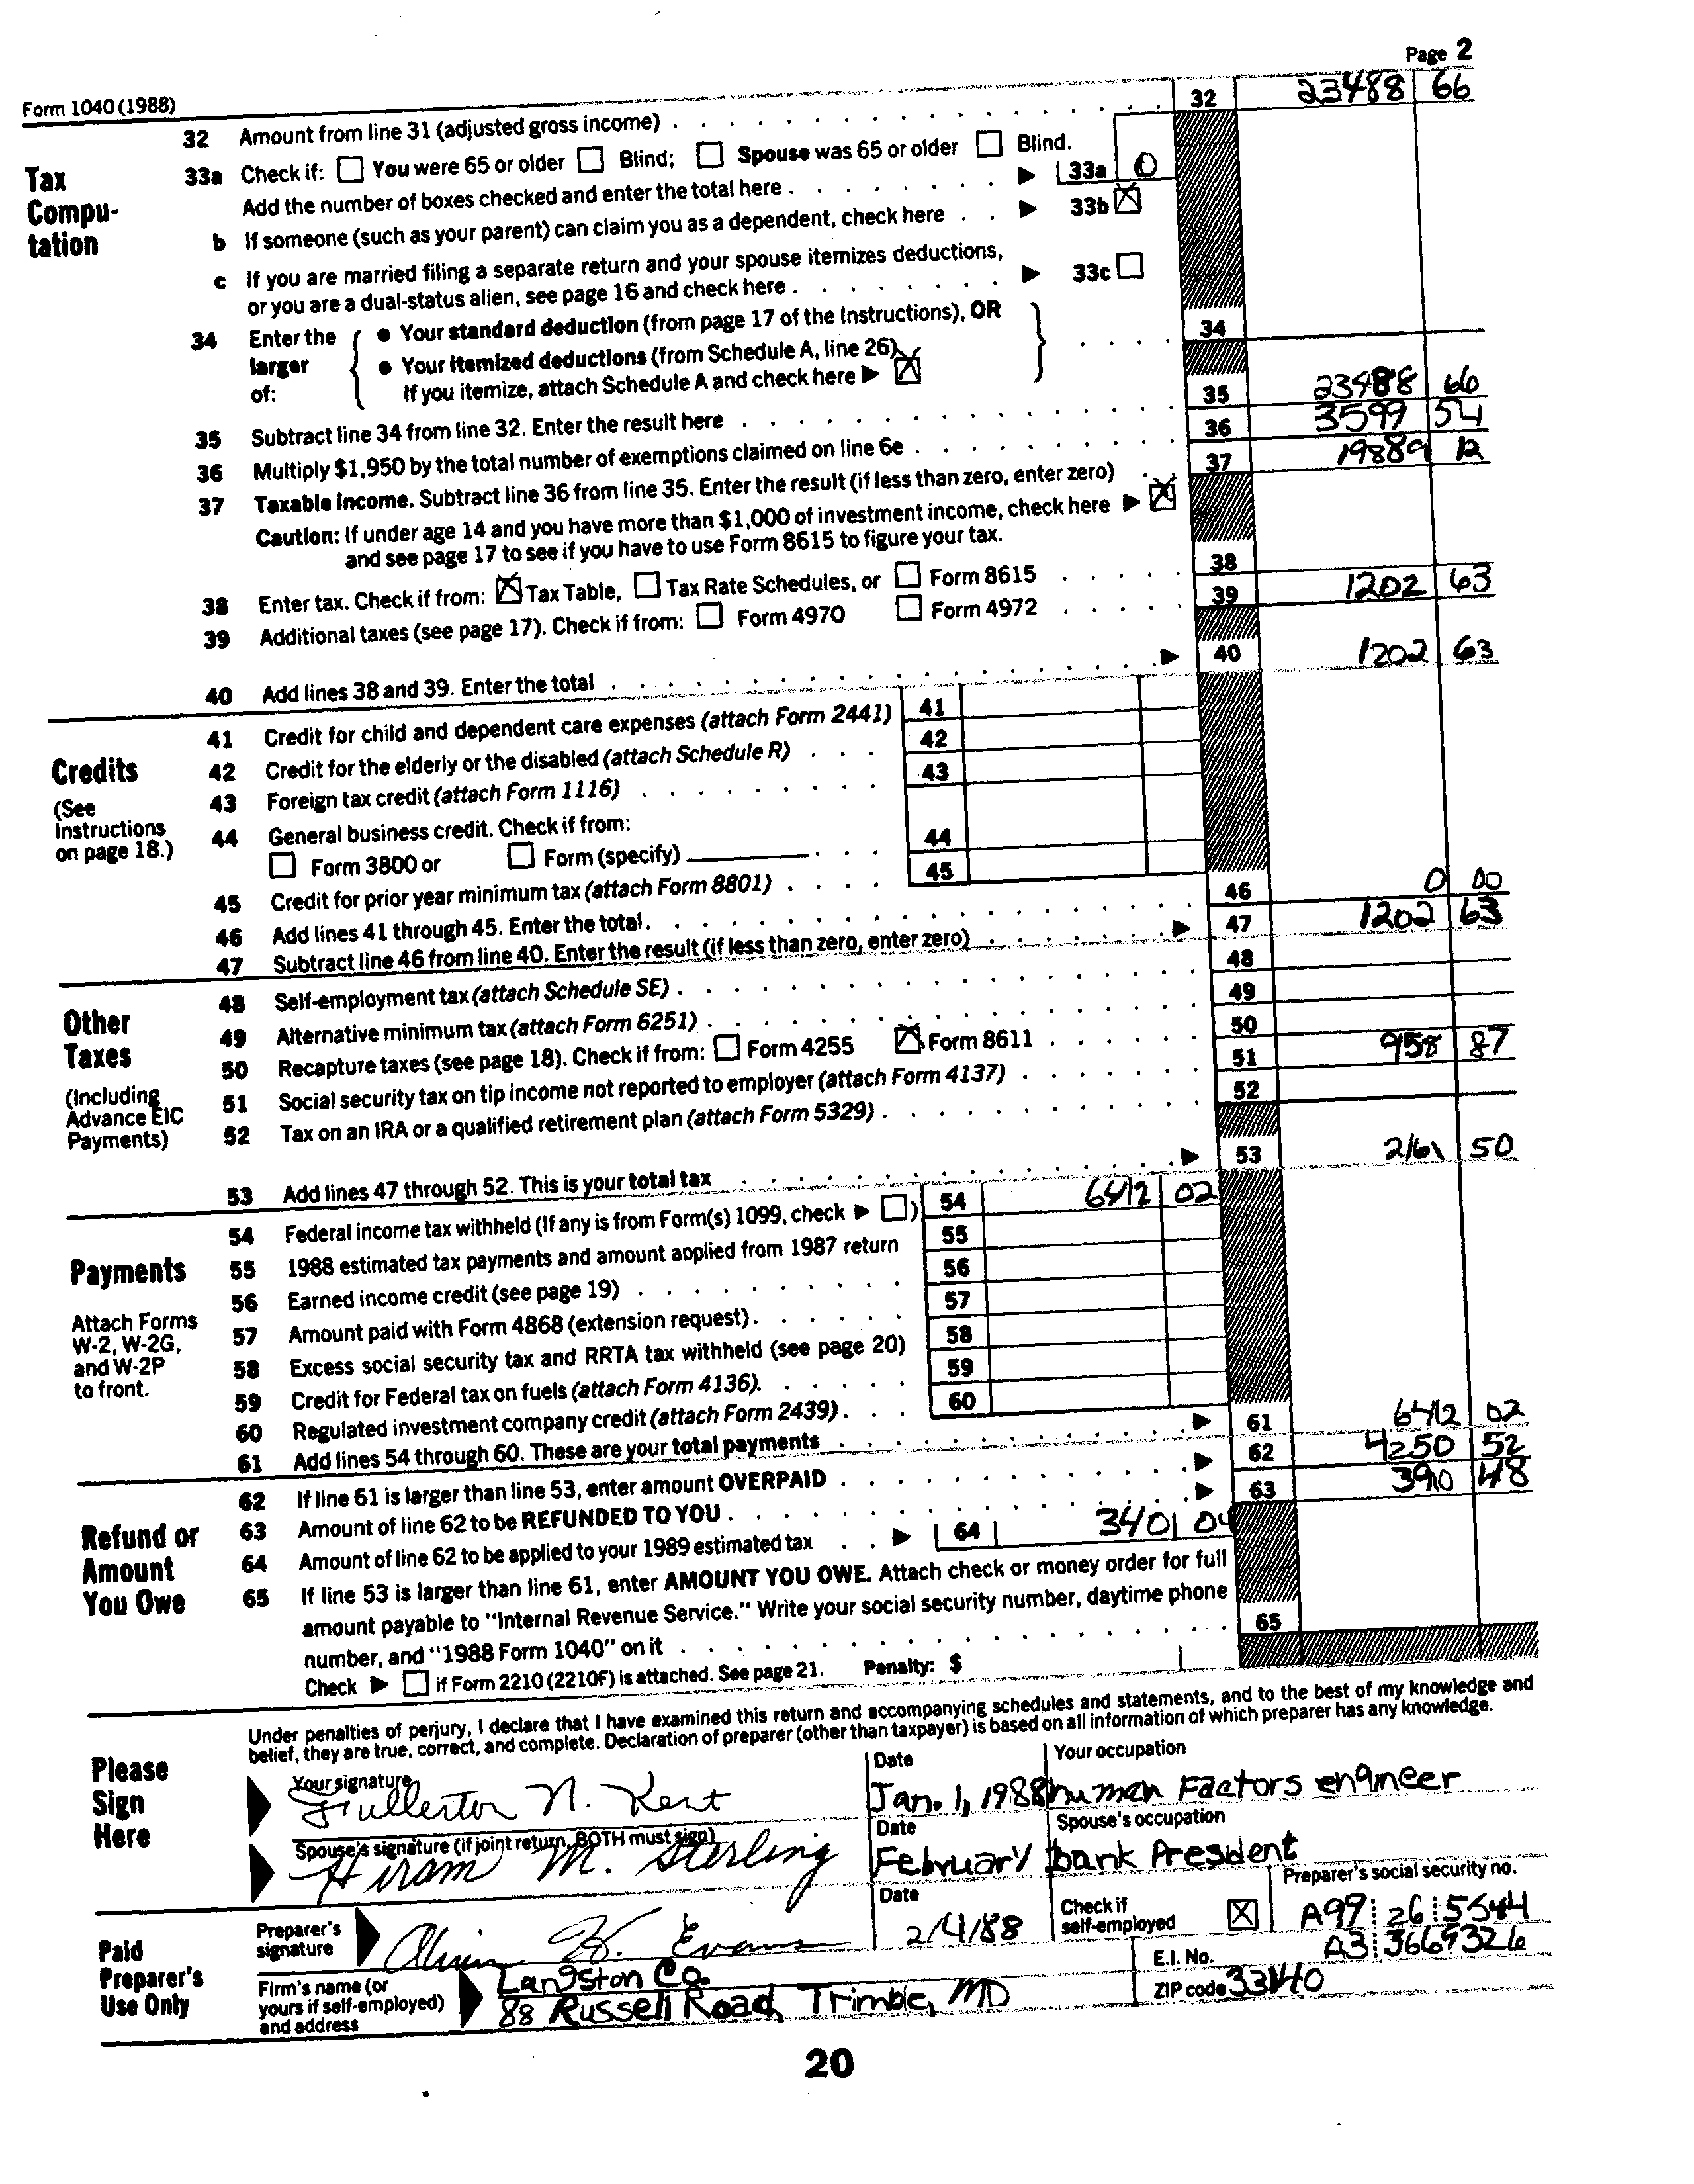 Page 2
Form 1040 (1988)
32 Amount from line 31 (adjusted gross income) 32 23488 66
Tax Compu-tation
33a Check if: You were 65 or older Blind; Spouse was 65 or older Blind.
Add the number of boxes checked and enter the total here 33a 0
b If someone (such as your parent) can claim you as a dependent, check here 33b X
c If you are married filing a separate return and your spouse itemizes deductions,
or you are a dual-status alien, see page 16 and check here 33c
34 Enter the larger of: Your standard deduction (from page 17 of the Instructions), OR 34
Your itemized deductions (from Schedule A, line 26)
If you itemize, attach Schedule A and check here X
35 Subtract line 34 from line 32. Enter the result here 35 23488 66
36 Multiply $1,950 by the total number of exemptions claimed on line 6e 36 3599 54
37 Taxable income. Subtract line 36 from line 35. Enter the result (if less than zero, enter zero) 37 19889 12
Caution: If under age 14 and you have more than $1,000 of investment income, check here X
and see page 17 to see if you have to use Form 8615 to figure your tax.
38 Enter tax. Check if from: X Tax Table, Tax Rate Schedules, or Form 8615 38
39 Additional taxes (see page 17). Check if from: Form 4970 Form 4972 39 1202 63
40 Add lines 38 and 39. Enter the total 40 1202 63
Credits
(See Instructions on page 18.)
41 Credit for child and dependent care expenses (attach Form 2441) 41
42 Credit for the elderly or the disabled (attach Schedule R) 42
43 Foreign tax credit (attach Form 1116) 43
44 General business credit. Check if from:
Form 3800 or Form (specify) 44
45 Credit for prior year minimum tax (attach Form 8801) 45
46 Add lines 41 through 45. Enter the total 46 0 00
47 Subtract line 46 from line 40. Enter the result (if less than zero, enter zero) 47 1202 63
Other Taxes
(Including Advance EIC Payments)
48 Self-employment tax (attach Schedule SE) 48
49 Alternative minimum tax (attach Form 6251) 49
50 Recapture taxes (see page 18). Check if from: Form 4255 X Form 8611 50
51 Social security tax on tip income not reported to employer (attach Form 4137) 51 958 87
52 Tax on an IRA or a qualified retirement plan (attach Form 5329) 52
53 Add lines 47 through 52. This is your total tax 53 2161 50
Payments
Attach Forms W-2, W-2G, and W-2P to front.
54 Federal income tax withheld (If any is from Form(s) 1099, check ) 54 6412 02
55 1988 estimated tax payments and amount applied from 1987 return 55
56 Earned income credit (see page 19) 56
57 Amount paid with Form 4868 (extension request) 57
58 Excess social security tax and RRTA tax withheld (see page 20) 58
59 Credit for Federal tax on fuels (attach Form 4136) 59
60 Regulated investment company credit (attach Form 2439) 60
61 Add lines 54 through 60. These are your total payments 61 6412 02
Refund or Amount You Owe
62 If line 61 is larger than line 53, enter amount OVERPAID 62 4250 52
63 Amount of line 62 to be REFUNDED TO YOU 63 390 48
64 Amount of line 62 to be applied to your 1989 estimated tax 64 3401 04
65 If line 53 is larger than line 61, enter AMOUNT YOU OWE. Attach check or money order for full
amount payable to "Internal Revenue Service." Write your social security number, daytime phone
number, and "1988 Form 1040" on it 65
Check if Form 2210 (2210F) is attached. See page 21. Penalty: $
Please Sign Here
Under penalties of perjury, I declare that I have examined this return and accompanying schedules and statements, and to the best of my knowledge and
belief, they are true, correct, and complete. Declaration of preparer (other than taxpayer) is based on all information of which preparer has any knowledge.
Your signature Date Your occupation
Fullerton N. Kent Jan. 1, 1988 human Factors engineer
Spouse's signature (if joint return, BOTH must sign) Date Spouse's occupation
Hiram M. Sterling February bank President
Paid Preparer's Use Only
Preparer's signature Date Check if self-employed Preparer's social security no.
K. Evans 2/4/88 X A97 26 5544
Firm's name (or yours if self-employed) and address
Langston Co. E.I. No. A3 3669326
88 Russell Road, Trimble, MD ZIP code 33140
20